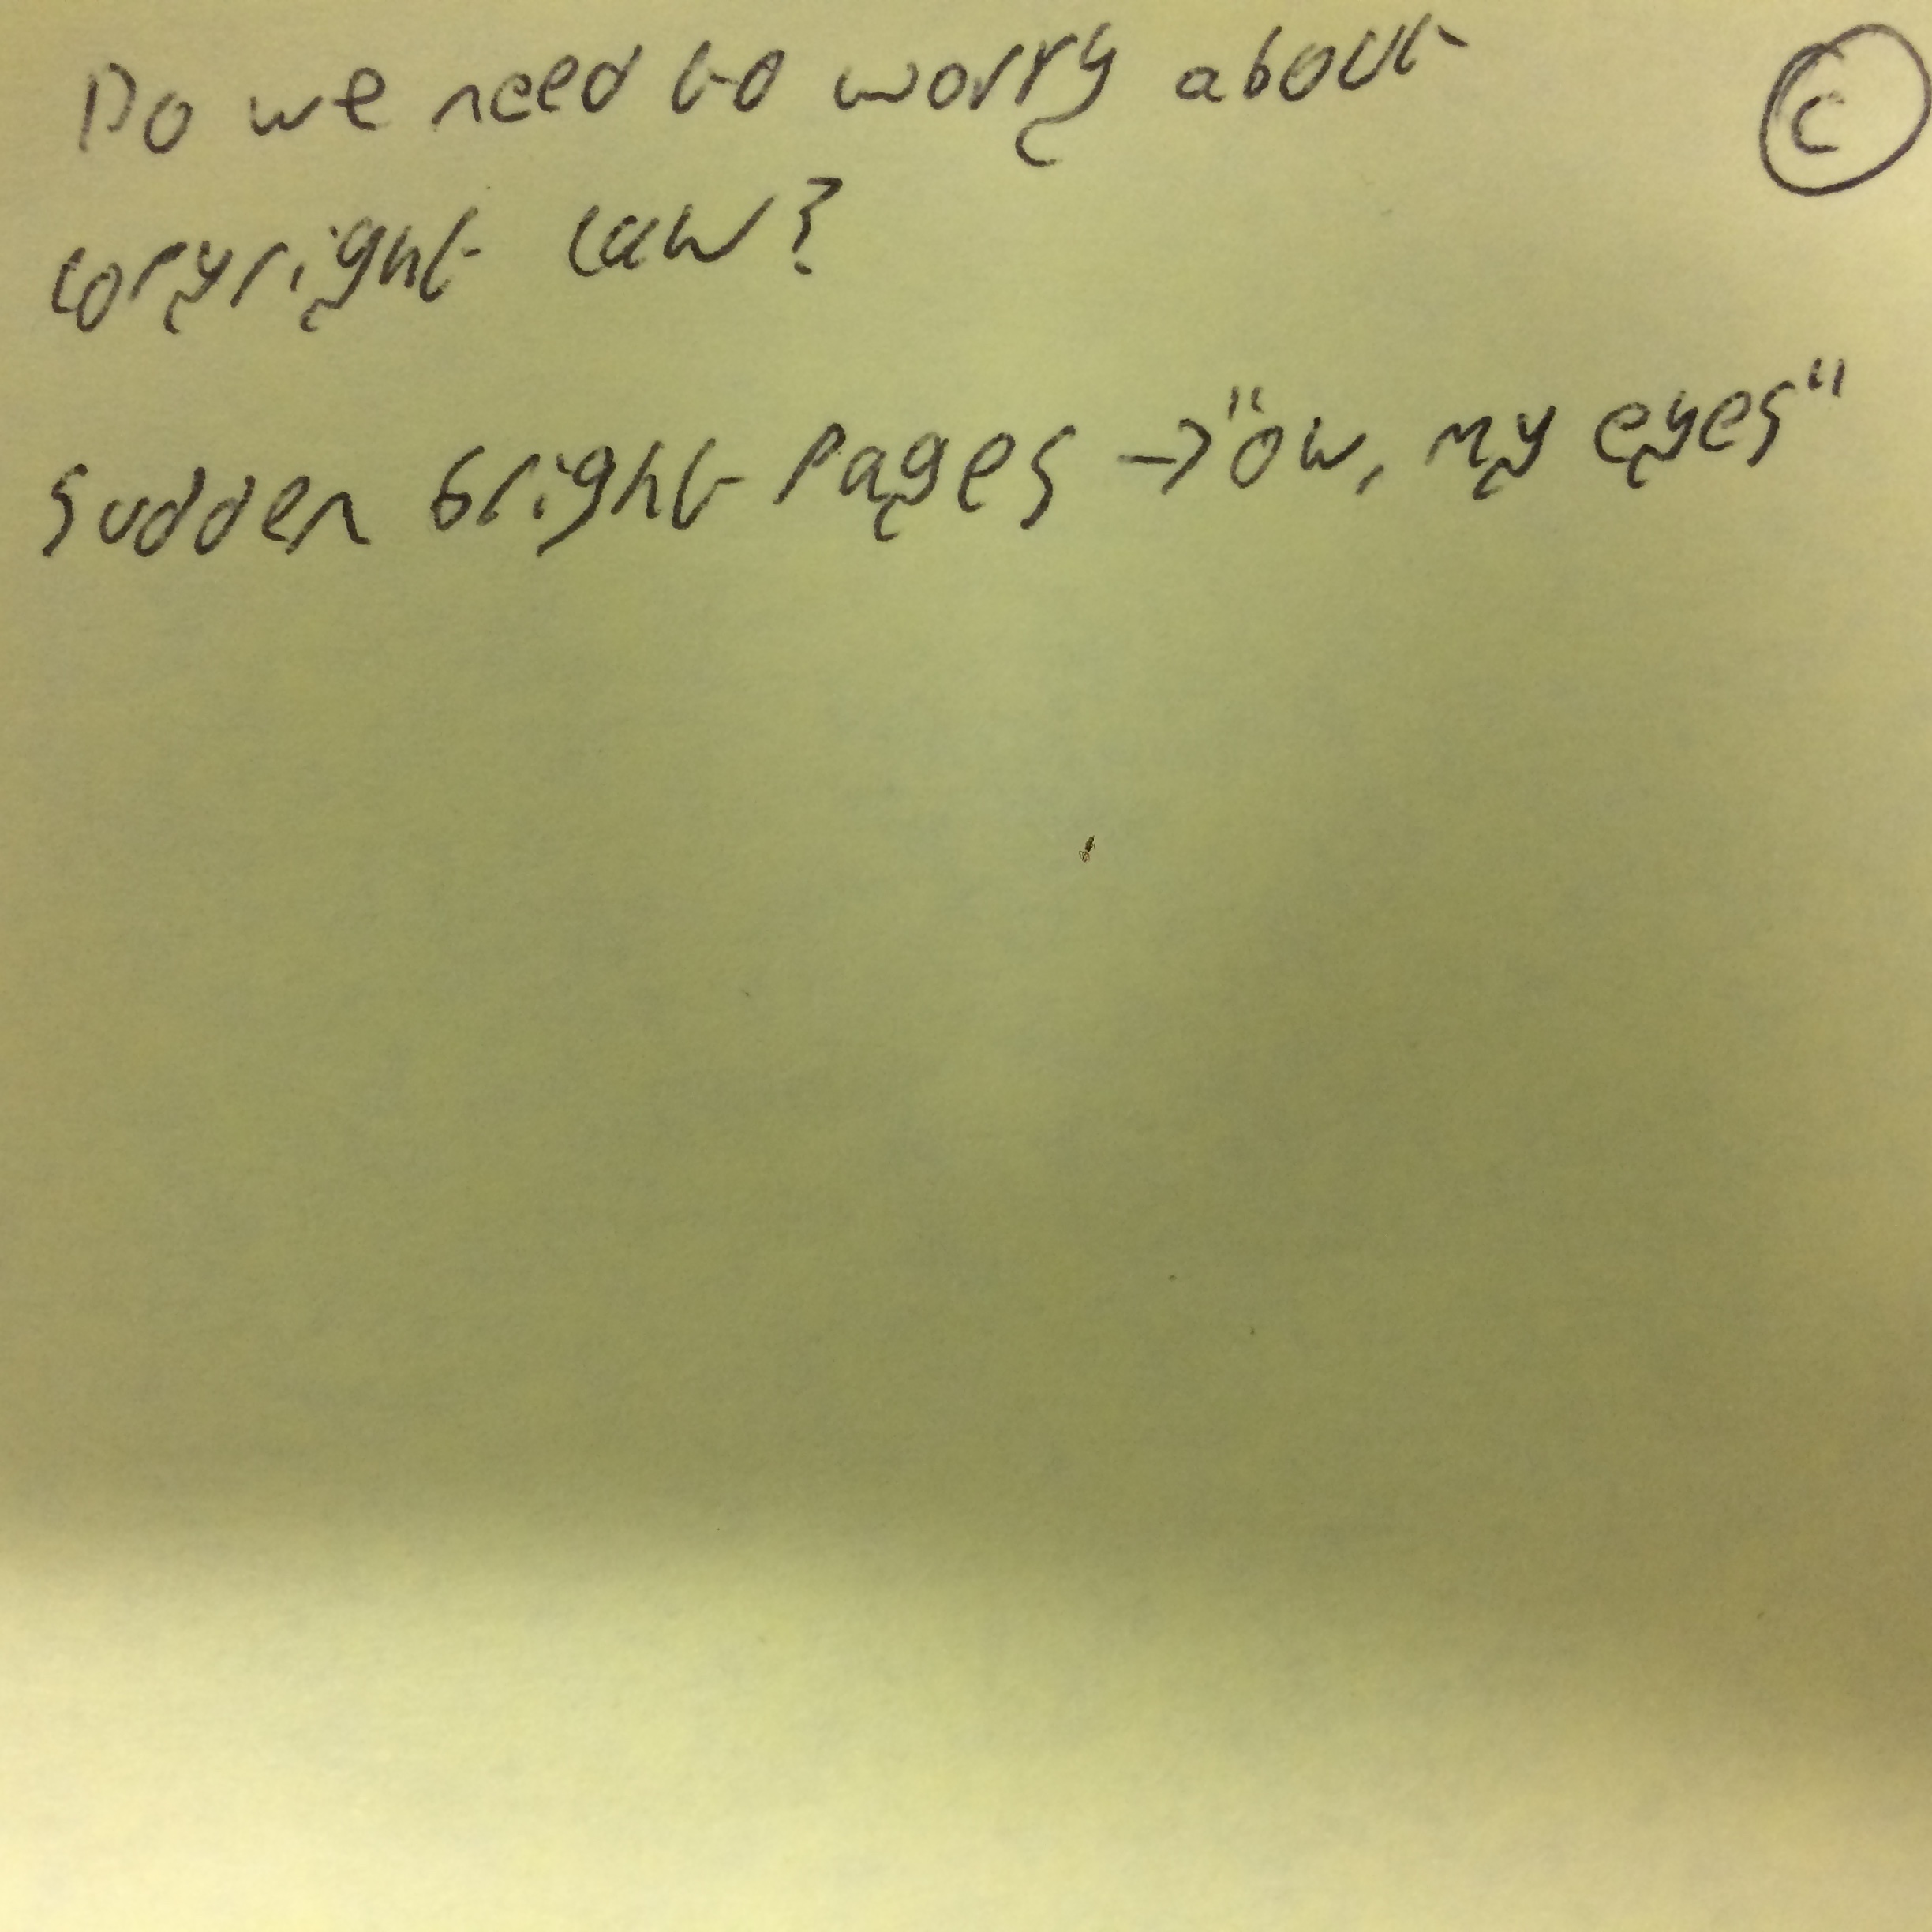 Do we need to worry about
copyright law?
©
Sudden bright pages → "ow, my eyes"